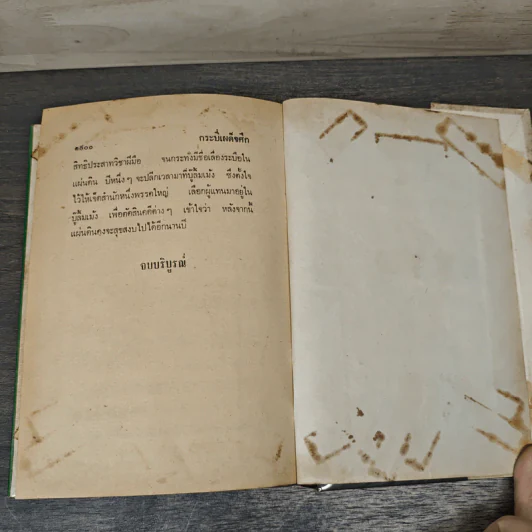 ๑๕๐๐ กระบี่เผด็จศึก
สิทธิประสาทวิชาฝีมือ จนกระทั่งมีชื่อเลื่องระบือใน
แผ่นดิน ปีหนึ่งๆ จะปลีกเวลามาที่บู๊ลิ้มเม้ง ซึ่งตั้งใจ
ไว้ให้เจ็ดสำนักหนึ่งพรรคใหญ่ เลือกผู้แทนมาอยู่ใน
บู๊ลิ้มเม้ง เพื่อตัดสินคดีต่างๆ เข้าใจว่า หลังจากนี้
แผ่นดินคงจะสุขสงบไปได้อีกนานปี
จบบริบูรณ์